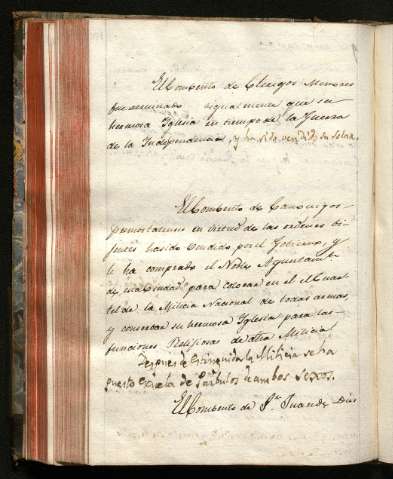 El Combento de Clerigos Menores
fue arruinado igualmente que su
hermosa Iglesia en tiempo de la Guerra
de la Independencia, y ha sido vendido su solar.
El Combento de Canonigos
Premostatenses en virtud de las ordenes
ha sido vendido por el Gobierno, y
le ha comprado el Noble Ayuntamto
de esta Ciudad para colocar en el el Cuar
tel de la Milicia Nacional de todas armas,
y conservar su hermosa Iglesia para las
funciones Religiosas de dha Milicia
Despues de Extinguida la Milicia se ha
puesto Escuela de Parbulos de ambos sexos.
El Combento de Sn Juan de Dios